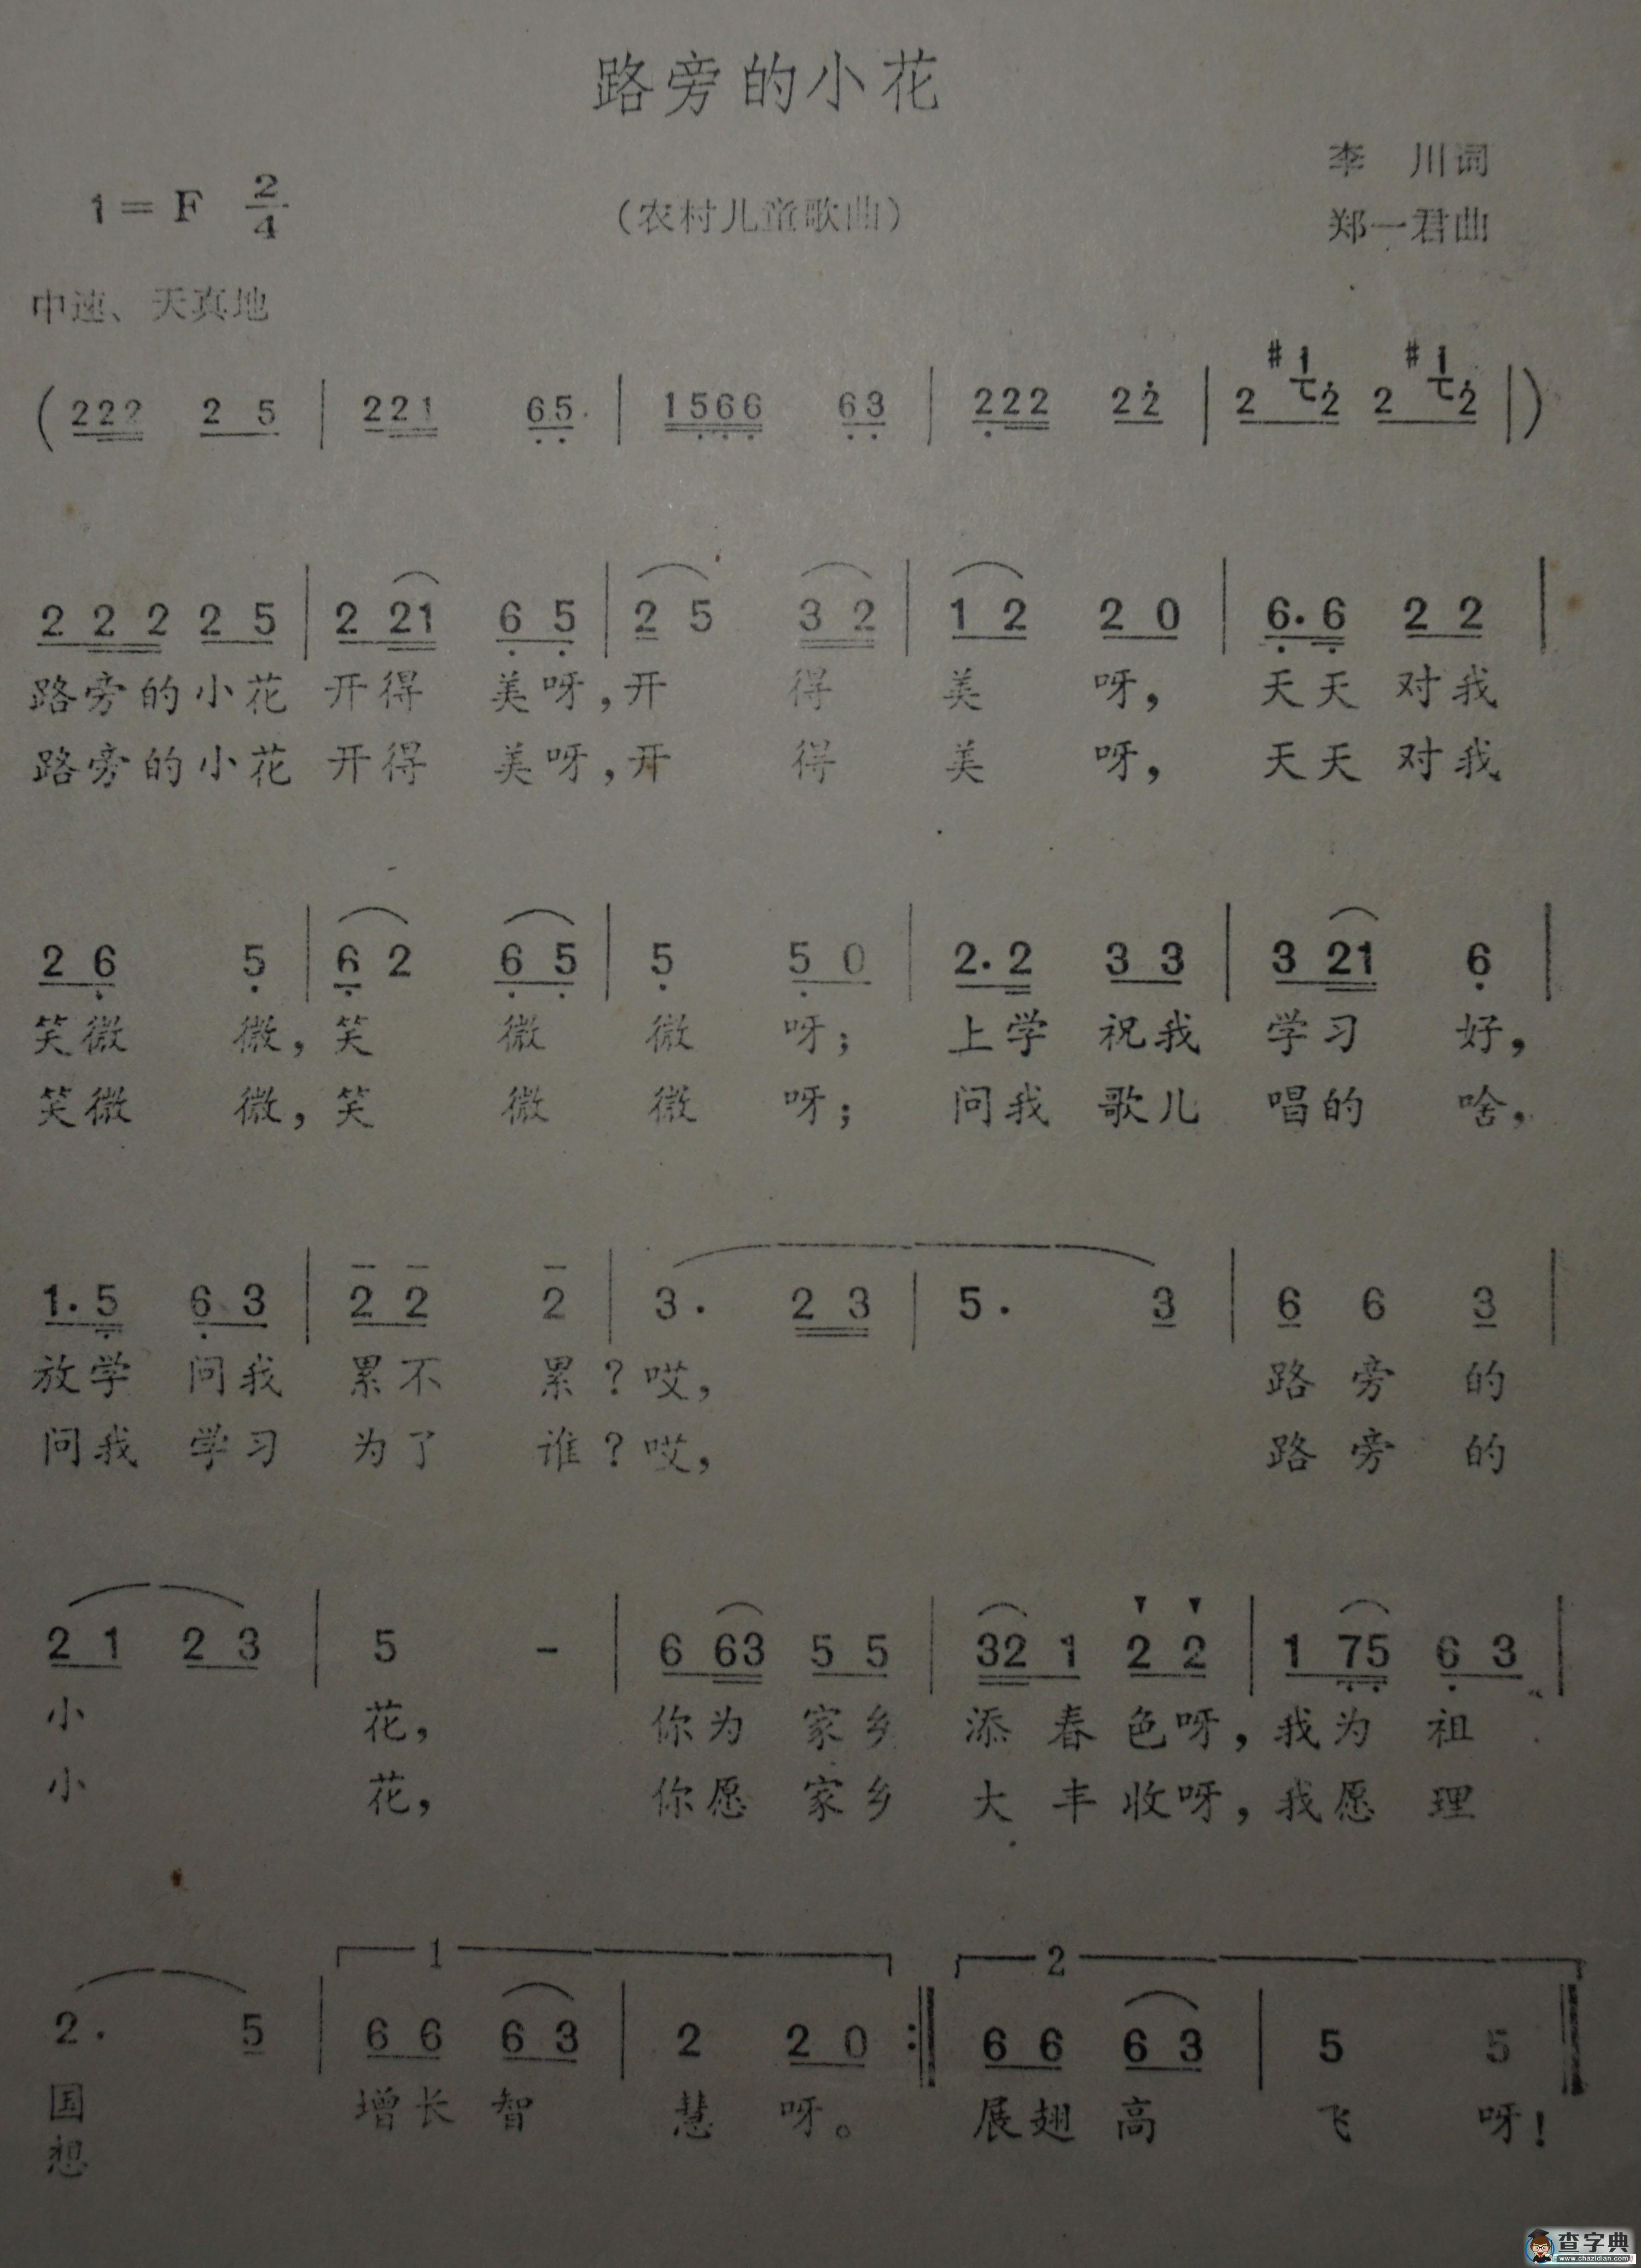 路旁的小花
李 川词
1=F 2/4 （农村儿童歌曲） 郑一君曲
中速、天真地
( 222 2 5 | 221 65 | 1566 63 | 222 22 | 2 #1 2 2 #1 2 | )
2 2 2 2 5 | 2 21 6 5 | 2 5 3 2 | 1 2 2 0 | 6. 6 2 2 |
路旁的小花 开得 美呀，开 得 美 呀， 天天 对我
路旁的小花 开得 美呀，开 得 美 呀， 天天 对我
2 6 5 | 6 2 6 5 | 5 5 0 | 2. 2 3 3 | 3 21 6 |
笑微 微，笑 微 微 呀； 上学 祝我 学习 好，
笑微 微，笑 微 微 呀； 问我 歌儿 唱的 啥，
1. 5 6 3 | 2 2 2 | 3. 2 3 | 5. 3 | 6 6 3 |
放学 问我 累不 累？哎， 路 旁 的
问我 学习 为了 谁？哎， 路 旁 的
2 1 2 3 | 5 - | 6 63 5 5 | 32 1 2 2 | 1 75 6 3 |
小 花， 你为 家乡 添 春 色呀，我为 祖
小 花， 你愿 家乡 大 丰 收呀，我愿 理
1 2
2. 5 | 6 6 6 3 | 2 2 0 :‖ 6 6 6 3 | 5 5 ‖
国 增长 智 慧 呀。 展翅 高 飞 呀！
想
查字典
www.chazidian.com